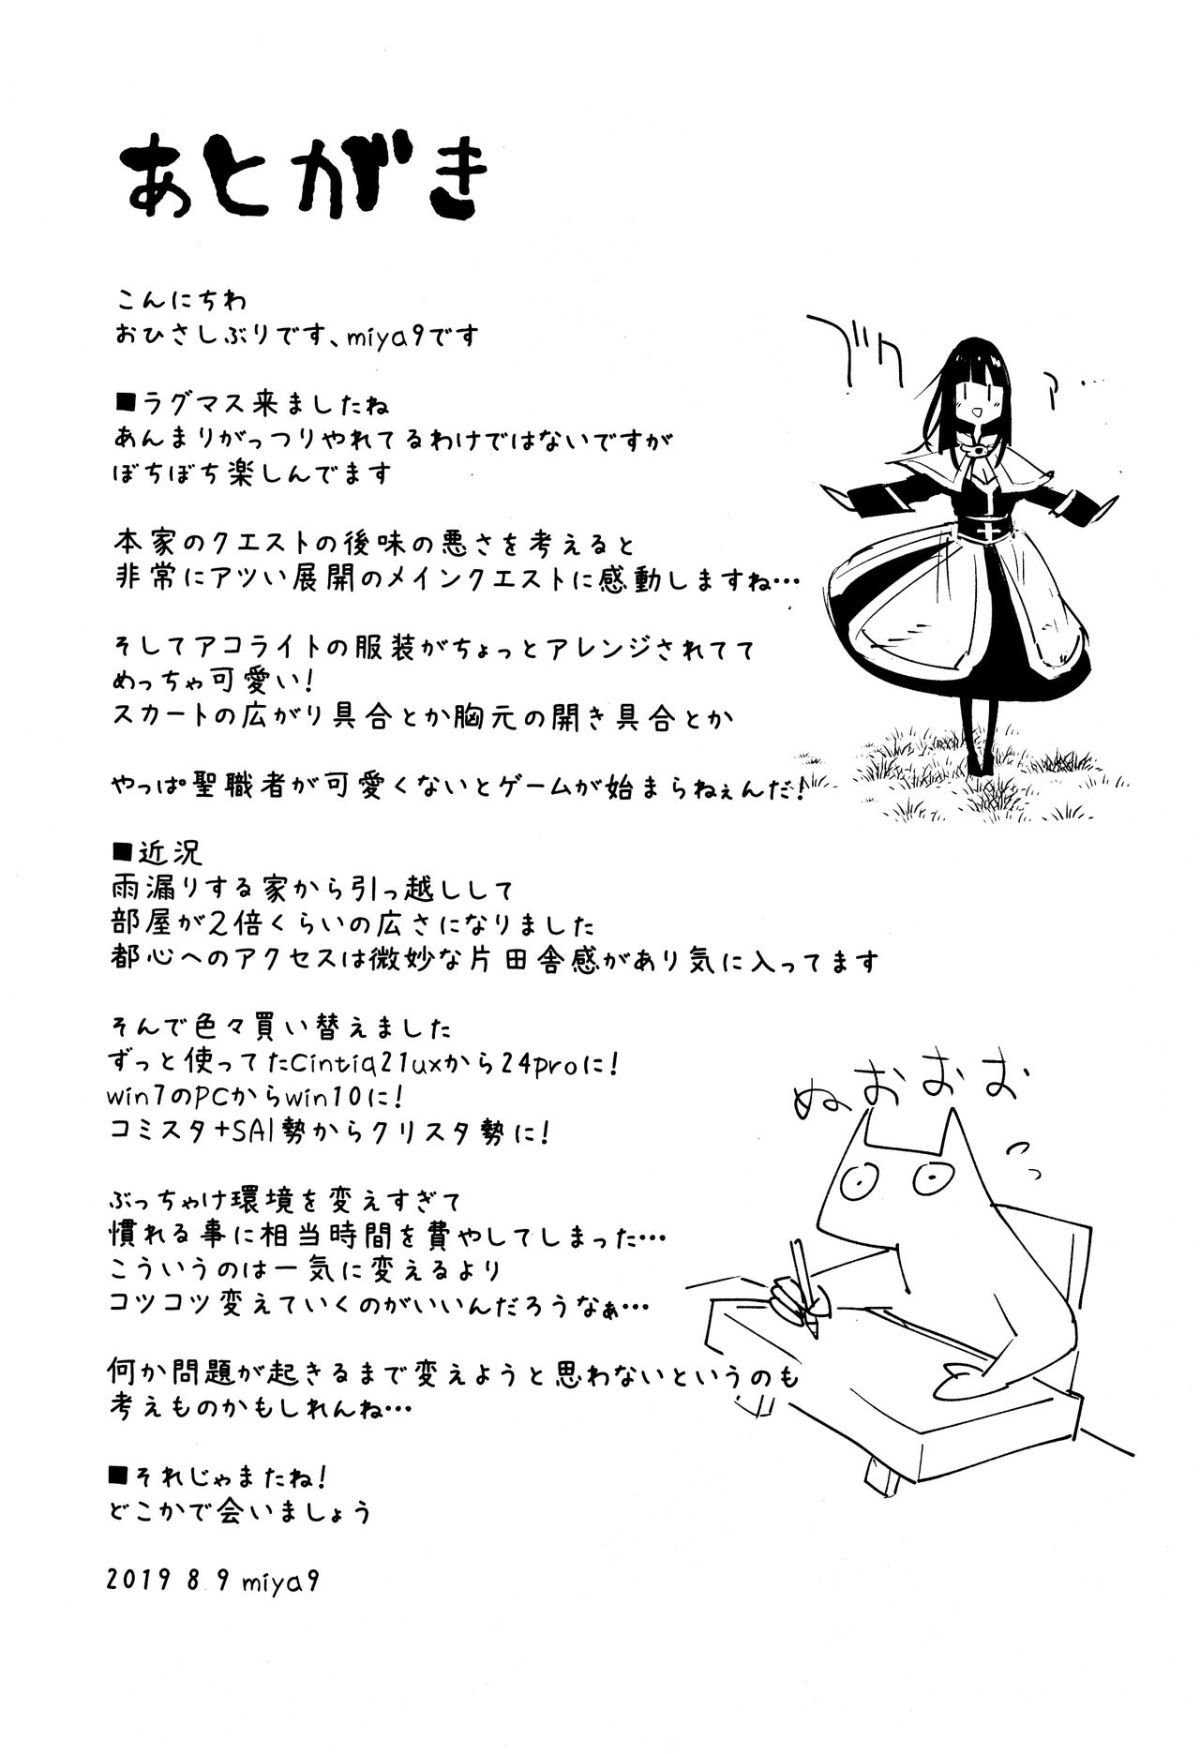 あとがき
こんにちわ
おひさしぶりです、miya9です
■ラグマス来ましたね
あんまりがっつりやれてるわけではないですが
ぼちぼち楽しんでます
本家のクエストの後味の悪さを考えると
非常にアツい展開のメインクエストに感動しますね…
そしてアコライトの服装がちょっとアレンジされてて
めっちゃ可愛い!
スカートの広がり具合とか胸元の開き具合とか
やっぱ聖職者が可愛くないとゲームが始まらねぇんだ!
■近況
雨漏りする家から引っ越しして
部屋が2倍くらいの広さになりました
都心へのアクセスは微妙な片田舎感があり気に入ってます
そんで色々買い替えました
ずっと使ってたCintiq21uxから24proに!
win7のPCからwin10に!
コミスタ+SAI勢からクリスタ勢に!
ぬおおおお
ぶっちゃけ環境を変えすぎて
慣れる事に相当時間を費やしてしまった…
こういうのは一気に変えるより
コツコツ変えていくのがいいんだろうなぁ…
何か問題が起きるまで変えようと思わないというのも
考えものかもしれんね…
■それじゃまたね!
どこかで会いましょう
2019 8 9 miya9